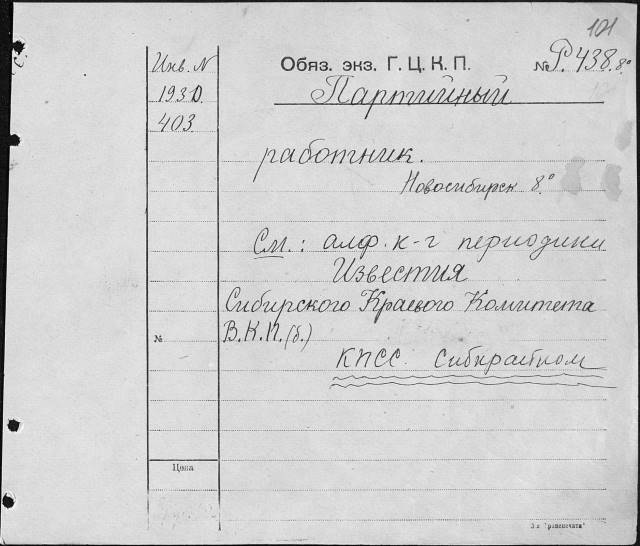 101
Инв. N
Обяз. экз. Г. Ц. К. П.
№ Р.438. 8°
1930
Партийный
403
работник.
Новосибирск 8°
См.: алф. к-г периодики
Известия
Сибирского Краевого Комитета
№
В.К.П. (б.)
КПСС. Сибкрайком
Цена